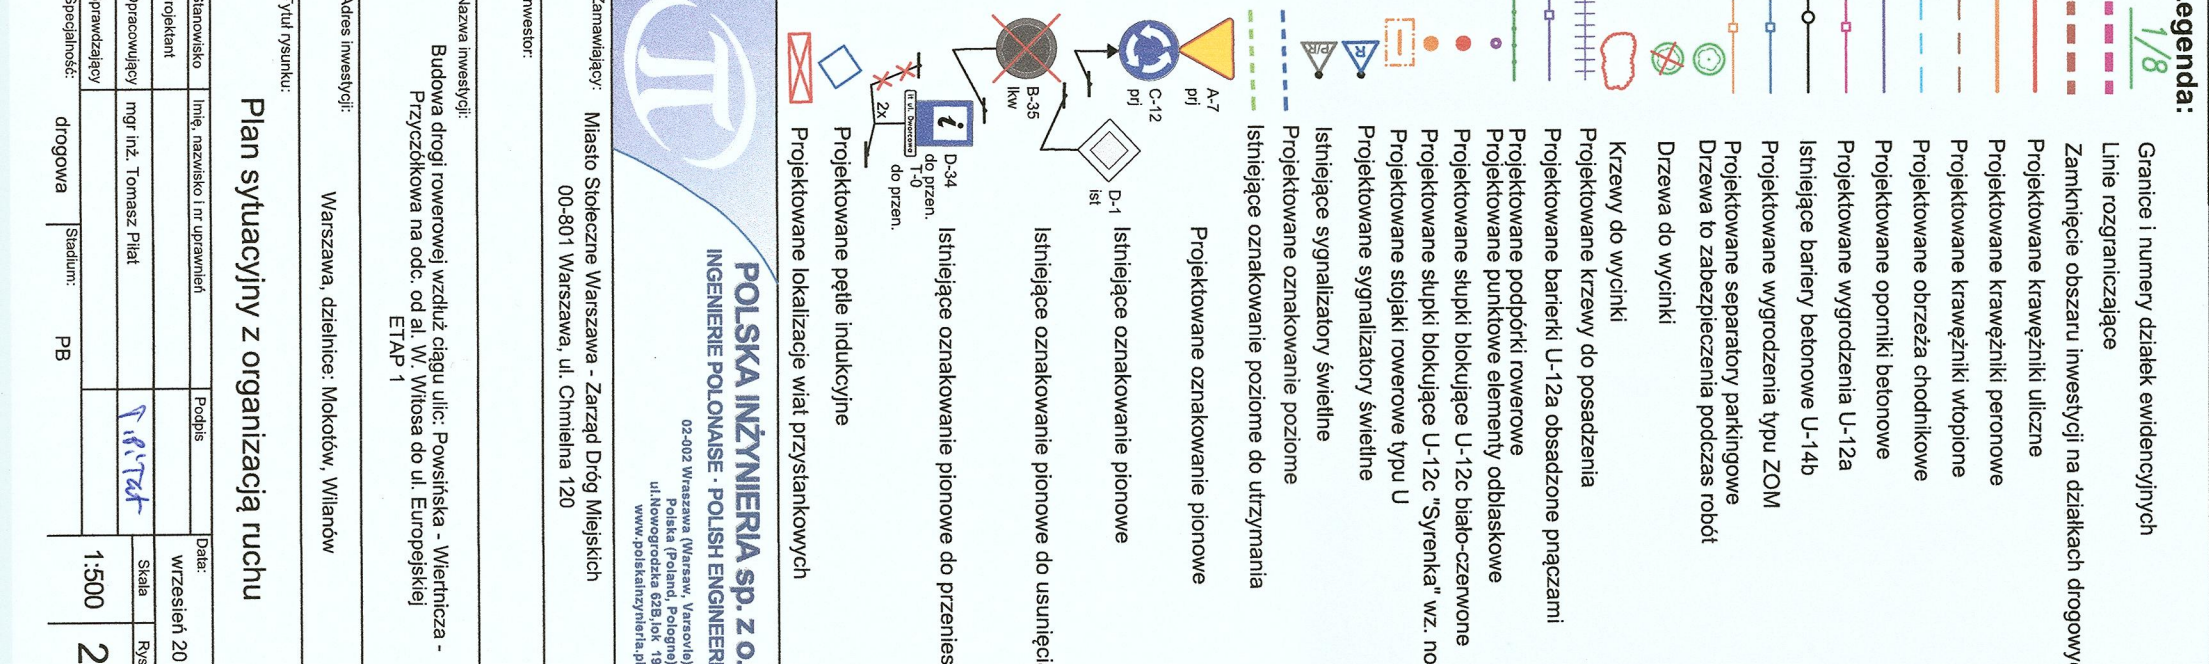 egenda:
1/8
Granice i numery działek ewidencyjnych
Linie rozgraniczające
Zamknięcie obszaru inwestycji na działkach drogowy
Projektowane krawężniki uliczne
Projektowane krawężniki peronowe
Projektowane krawężniki wtopione
Projektowane obrzeża chodnikowe
Projektowane oporniki betonowe
Projektowane wygrodzenia U-12a
Istniejące bariery betonowe U-14b
Projektowane wygrodzenia typu ZOM
Projektowane separatory parkingowe
Drzewa to zabezpieczenia podczas robót
Drzewa do wycinki
Krzewy do wycinki
Projektowane krzewy do posadzenia
Projektowane barierki U-12a obsadzone pnączami
Projektowane podpórki rowerowe
Projektowane punktowe elementy odblaskowe
Projektowane słupki blokujące U-12c biało-czerwone
Projektowane słupki blokujące U-12c "Syrenka" wz. no
Projektowane stojaki rowerowe typu U
R
Projektowane sygnalizatory świetlne
P/R
Istniejące sygnalizatory świetlne
Projektowane oznakowanie poziome
Istniejące oznakowanie poziome do utrzymania
A-7
prj
C-12
prj
Projektowane oznakowanie pionowe
D-1
ist
Istniejące oznakowanie pionowe
B-35
lkw
Istniejące oznakowanie pionowe do usunięci
i
D-34
do przen.
T-0
do przen.
ul. Dworcowa
2x
Istniejące oznakowanie pionowe do przenies
Projektowane pętle indukcyjne
Projektowane lokalizacje wiat przystankowych
POLSKA INŻYNIERIA sp. z o.
INGENIERIE POLONAISE - POLISH ENGINEERI
02-002 Wraszawa (Warsaw, Varsovie)
Polska (Poland, Pologne)
ul.Nowogrodzka 62B,lok 19
www.polskainzynieria.pl
Zamawiający:
Miasto Stołeczne Warszawa - Zarząd Dróg Miejskich
00-801 Warszawa, ul. Chmielna 120
nwestor:
Nazwa inwestycji:
Budowa drogi rowerowej wzdłuż ciągu ulic: Powsińska - Wiertnicza -
Przyczółkowa na odc. od al. W. Witosa do ul. Europejskiej
ETAP 1
Adres inwestycji:
Warszawa, dzielnice: Mokotów, Wilanów
ytuł rysunku:
Plan sytuacyjny z organizacją ruchu
Stanowisko
Imię, nazwisko i nr uprawnień
Podpis
Data:
wrzesień 20
rojektant
Opracowujący
mgr inż. Tomasz Piłat
T. Piłat
Skala
Rys
prawdzający
1:500
2
Specjalność:
drogowa
Stadium:
PB